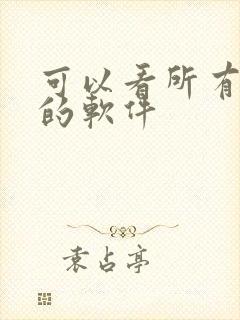 可以看所有
的軟件
袁占亭